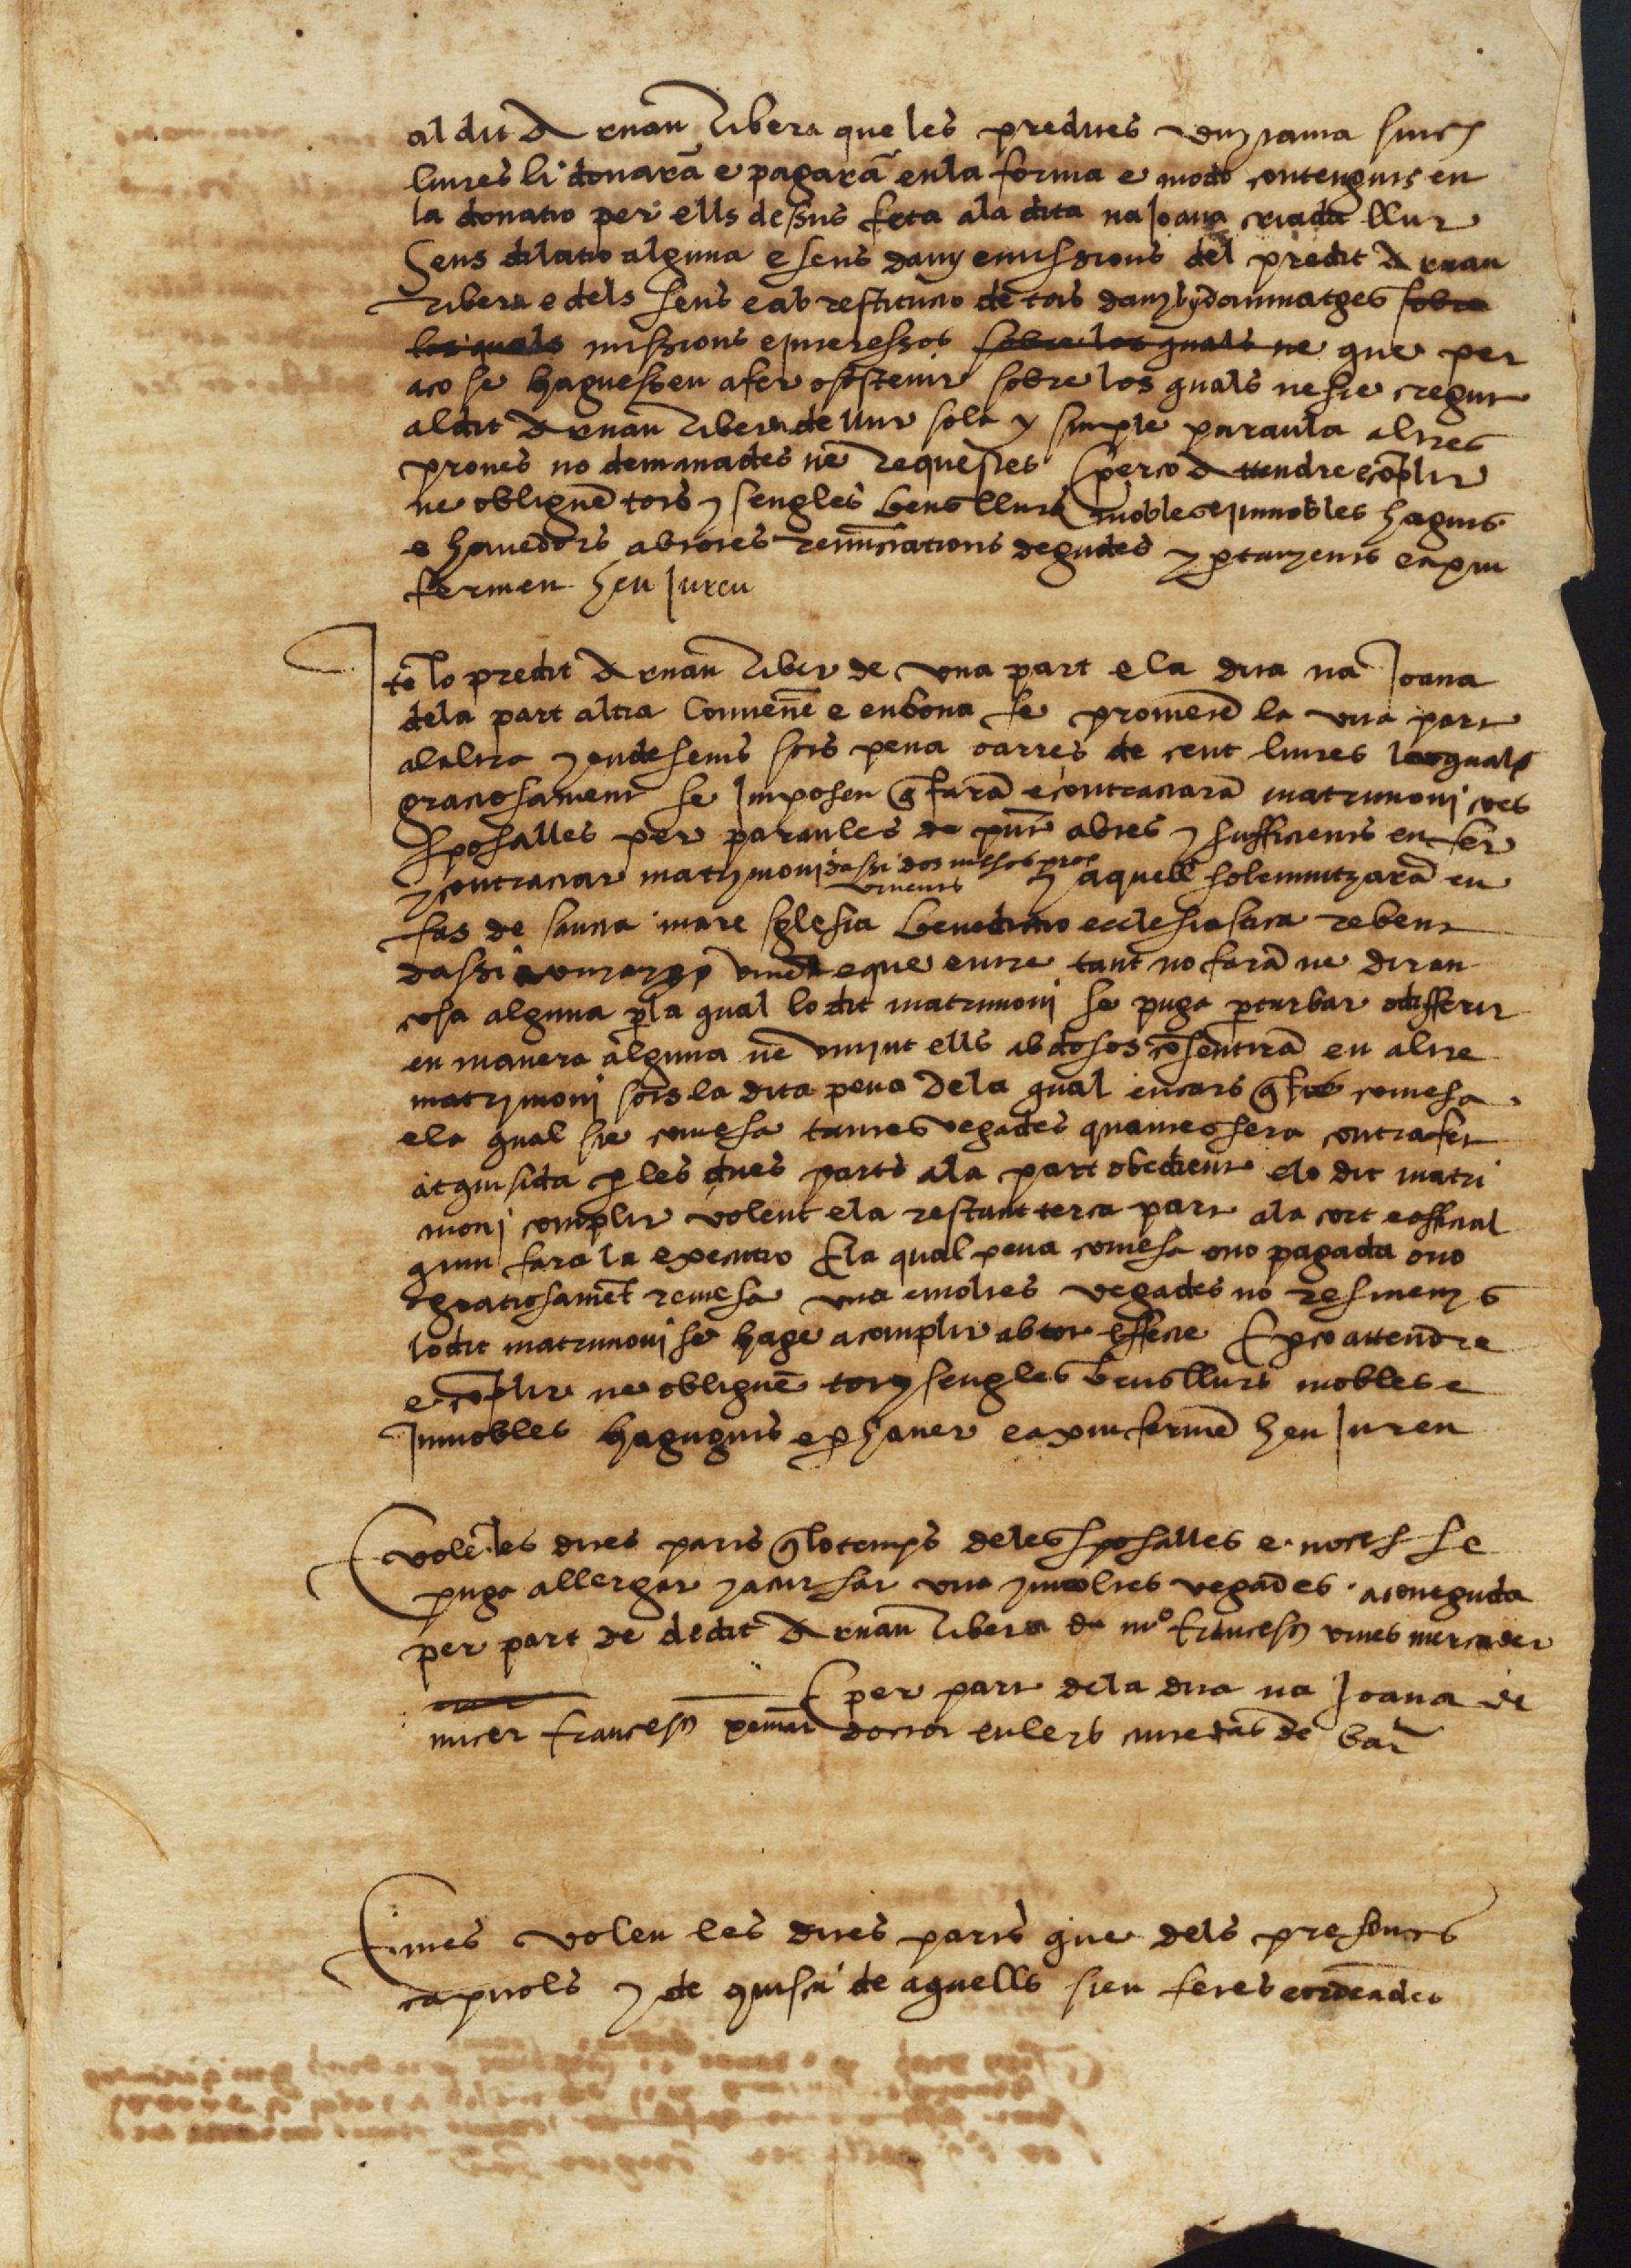 al dit Arnau Ribera que les predites vuytanta sinch
liures li donarã e pagarã en la forma e modo contenguts en
la donatio per ells dessus feta a la dita na Joana criada llur
Sens dilatio alguna e sens dany e missions del predit Arnau
ribera e dels seus e ab restitutio de tots danys y dammatges sobre
los quals missions e interessos sobre los quals ne que per
aco se haguessen a fer o sostenir sobre los quals ne sie cregut
al dit Arnau Ribera de llur sola y simple paraula altres
proues no demanades ne requestes E per ço Attendre e cõplir
ne obliguẽ tots y sengles bens llurs mobles e immobles haguts
e hauedors ab totes renũciations degudes y ptanyents e axiu
fermen heu Juren
Itẽ lo predit Arnau Riber de vna part e la dita na Joana
de la part altra Conuenẽ e en bona fe prometẽ la vna part
al altra y endesemps sots pena o arres de cent liures les quals
graciosament se Imposen q̃ farã e contractarã matrimoni o es
Sposalles per paraules de pñt abtes y sufficients en fer
y contractar matrymoni dassi dos mesos prop
vinents y aquell solemnitzarã en
fas de sancta mare sglesia benedictio ecclesiastica rebent
dassi vinẽt e que entre tant no farã ne diran
cosa alguna p la qual lo dit matrimoni se puga pturbar o differir
en manera alguna ne viuint ells abdosos cõsentirã en altre
matrymoni sots la dita pena De la qual encars q̃ fos comesa
e la qual sie comesa tantes vegades quantes sera contrafet
atquisida p les dues parts a la part obedient e lo dit matri
monj complir volent e la restant terca part a la cort e official
quin fara la executio E la qual pena comesa o no pagada o no
gratiosamẽt remesa vna e moltes vegades no resmenys
lo dit matrimoni se hage a complir ab tot effecte E p ço attendre
e cõplir ne obliguẽ tots y sengles bens llurs mobles e
Immobles haguguts e p hauer e axiu fermẽ heu Juren
E volẽ les dites parts q̃ lo temps de les sposalles e noces se
puga allergar y acursar vna y moltes vegades a coneguda
per part de dedit Arnau Ribera de mº francesch viues mercader
E per part de la dita na Joana de
micer francesch doctor en leys ciutedas de Barª
E mes volen les dites parts que dels presents
capitols y de quiscu de aquells sien fetes e ordenades